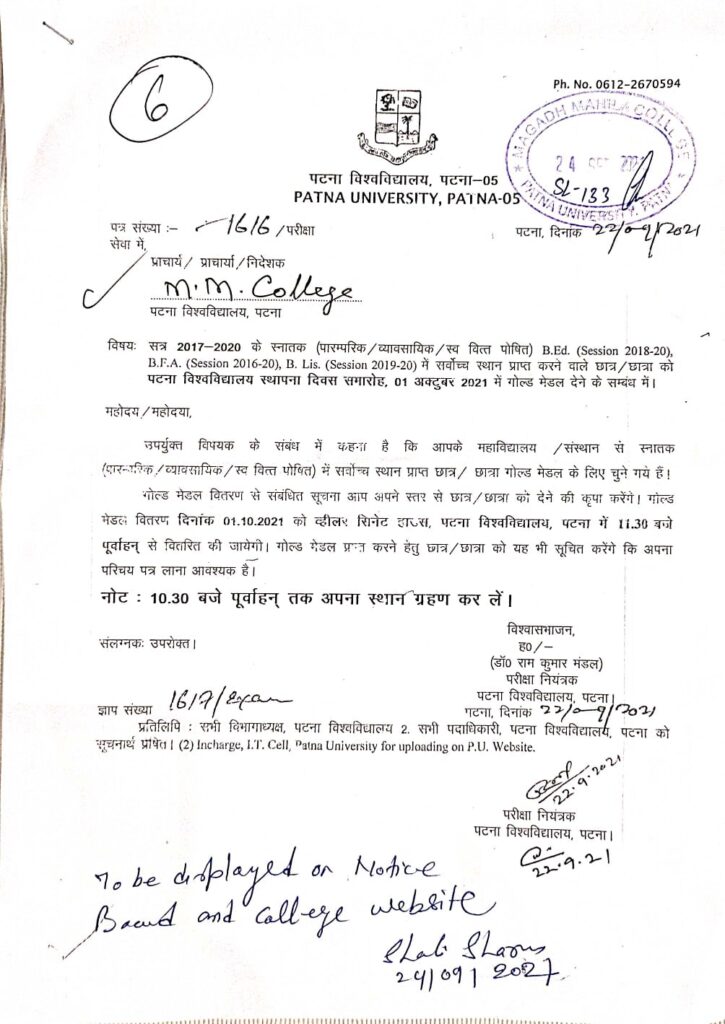 6
Ph. No. 0612-2670594
MAGADH MAHILA COLLEGE
24
SL-133
PATNA UNIVERSITY, PATNA
पटना विश्वविद्यालय, पटना–05
PATNA UNIVERSITY, PATNA-05
पत्र संख्या :- 1616 /परीक्षा
पटना, दिनांक 22/09/2021
सेवा में,
प्राचार्य/ प्राचार्या/निदेशक
M.M. College
पटना विश्वविद्यालय, पटना
विषयः सत्र 2017–2020 के स्नातक (पारम्परिक/व्यावसायिक/स्व वित्त पोषित) B.Ed. (Session 2018-20),
B.F.A. (Session 2016-20), B. Lis. (Session 2019-20) में सर्वोच्च स्थान प्राप्त करने वाले छात्र/छात्रा को
पटना विश्वविद्यालय स्थापना दिवस समारोह, 01 अक्टुबर 2021 में गोल्ड मेडल देने के सम्बंध में।
महोदय/महोदया,
उपर्युक्त विषयक के संबंध में कहना है कि आपके महाविद्यालय /संस्थान से स्नातक
(पारम्परिक/व्यावसायिक/स्व वित्त पोषित) में सर्वोच्च स्थान प्राप्त छात्र/ छात्रा गोल्ड मेडल के लिए चुने गये हैं!
गोल्ड मेडल वितरण से संबंधित सूचना आप अपने स्तर से छात्र/छात्रा को देने की कृपा करेंगे। गोल्ड
मेडल वितरण दिनांक 01.10.2021 को व्हीलर सिनेट हाउस, पटना विश्वविद्यालय, पटना में 11.30 बजे
पूर्वाहन् से वितरित की जायेगी। गोल्ड मेडल प्राप्त करने हेतु छात्र/छात्रा को यह भी सूचित करेंगे कि अपना
परिचय पत्र लाना आवश्यक है।
नोट : 10.30 बजे पूर्वाहन् तक अपना स्थान ग्रहण कर लें।
विश्वासभाजन,
संलग्नकः उपरोक्त।
ह0/–
(डॉ0 राम कुमार मंडल)
परीक्षा नियंत्रक
पटना विश्वविद्यालय, पटना।
ज्ञाप संख्या 1617/Exam
पटना, दिनांक 22/09/2021
प्रतिलिपि : सभी विभागाध्यक्ष, पटना विश्वविद्यालय 2. सभी पदाधिकारी, पटना विश्वविद्यालय, पटना को
सूचनार्थ प्रषित। (2) Incharge, I.T. Cell, Patna University for uploading on P.U. Website.
22.9.2021
परीक्षा नियंत्रक
पटना विश्वविद्यालय, पटना।
22.9.21
To be displayed on Notice
Board and College website
24/09/2021